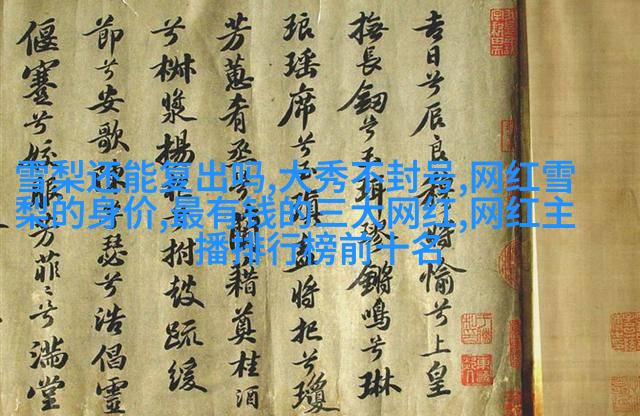 雪梨还能复出吗,大秀不封号,网红雪
梨的身价,最有钱的三大网红,网红主
播排行榜前十名
吉日兮辰良穆將愉兮上皇
撫長劔兮玉珥璆鏘鳴兮琳
琅瑶席兮玉瑱盍將把兮瓊
芳蕙肴烝兮蘭藉奠桂酒
兮椒漿揚枹兮拊鼓疏緩
節兮安歌陳竽瑟兮浩倡靈
偃蹇兮姣服芳菲〻兮滿堂